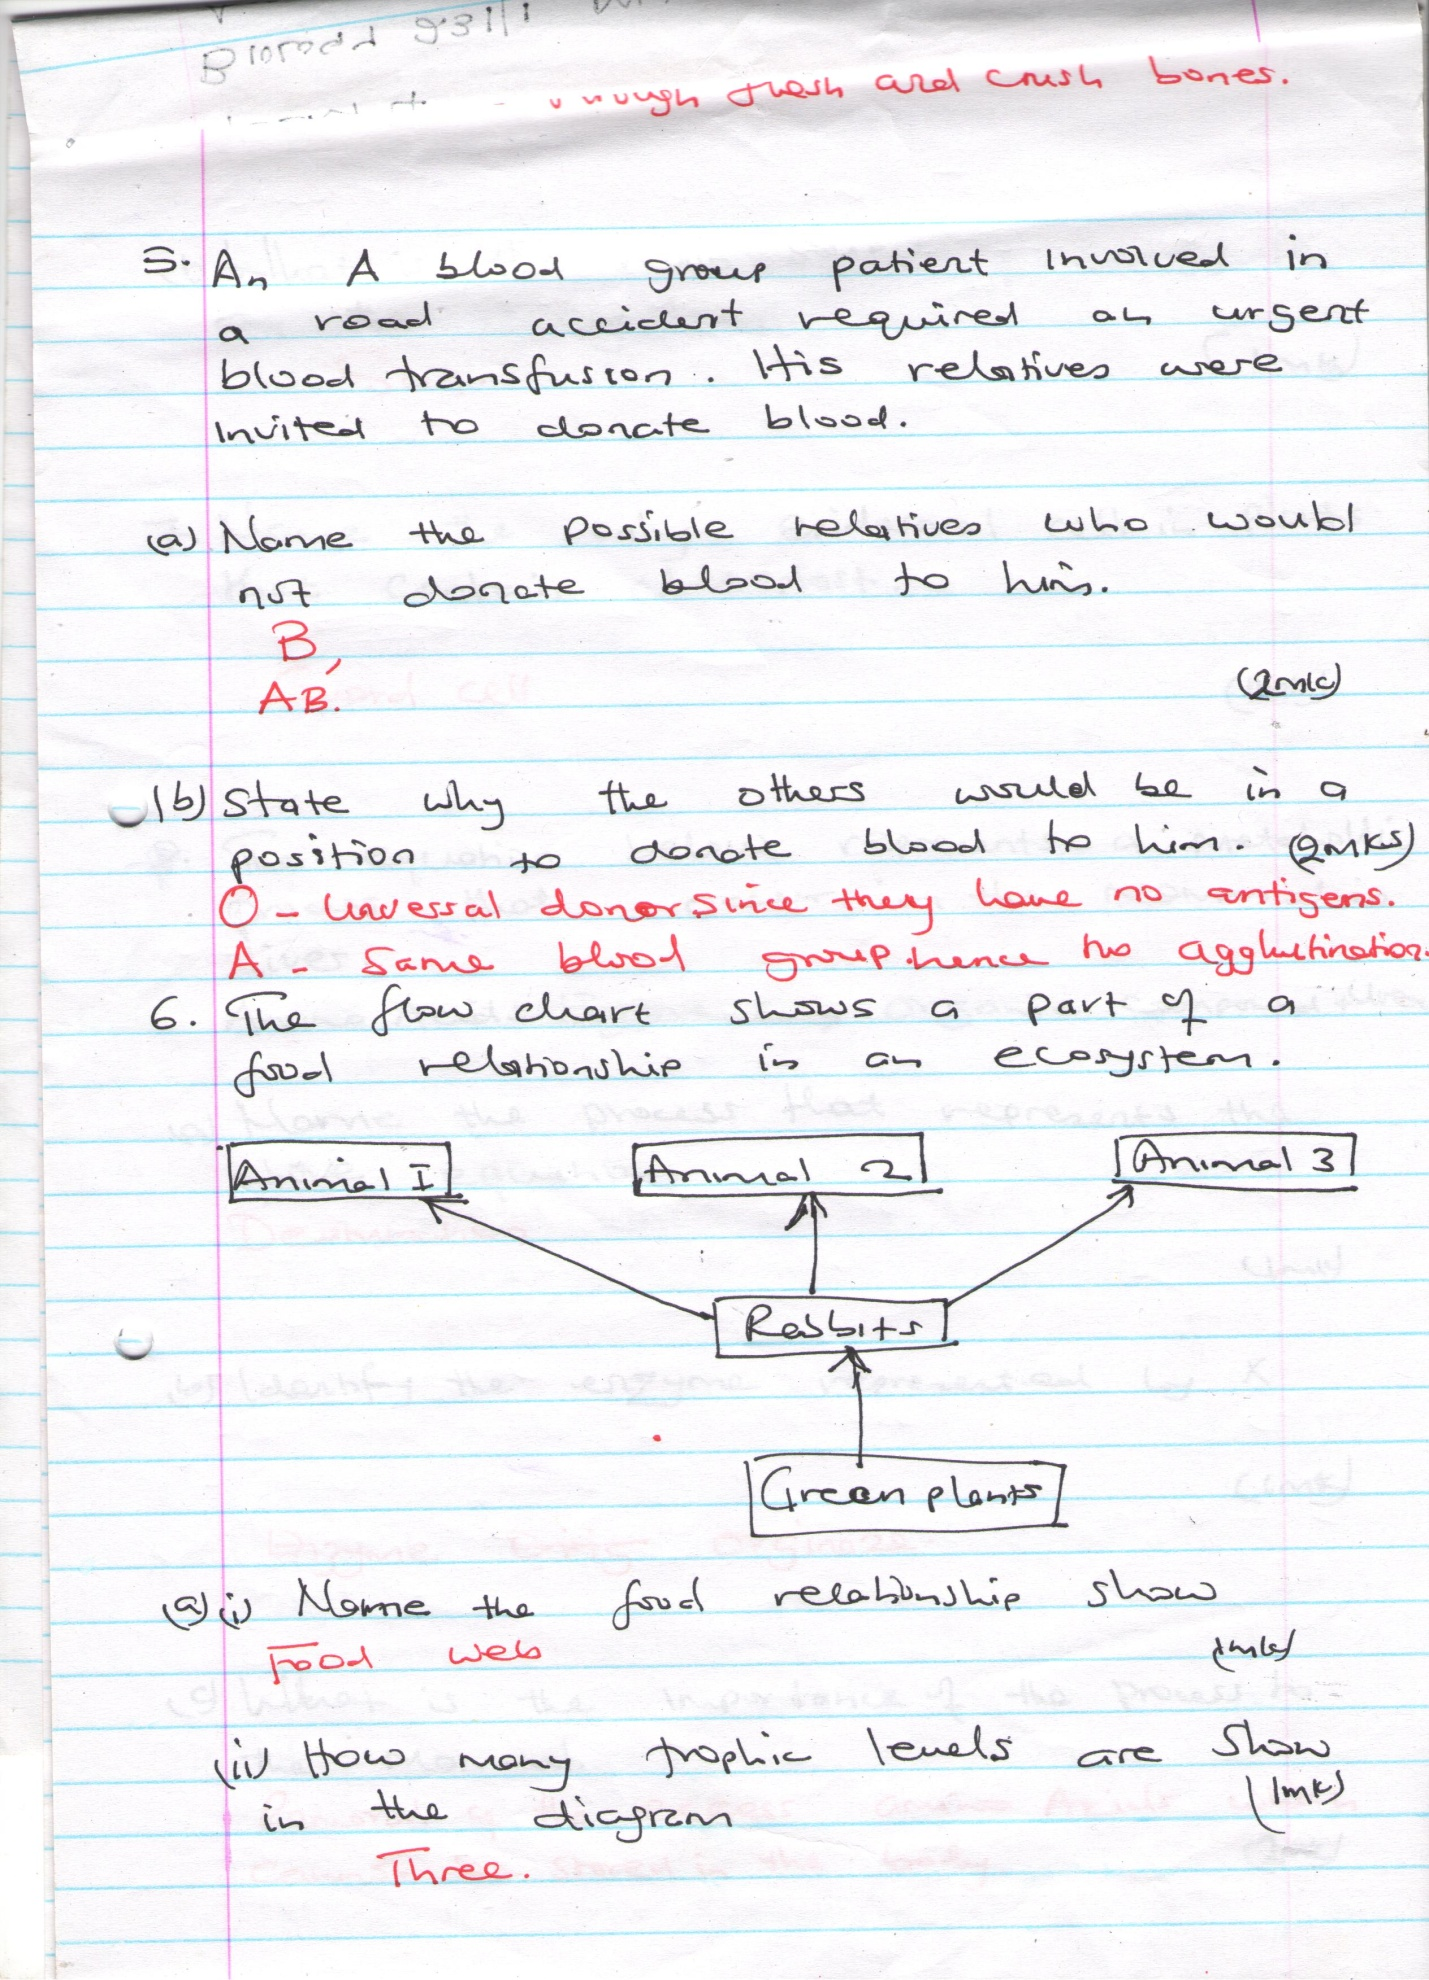 and crush bones.
5. An A blood group patient involved in
a road accident required an urgent
blood transfusion. His relatives were
Invited to donate blood.
(a) Name the possible relatives who would
not donate blood to him.
B,
AB.
(2mk)
(b) State why the others would be in a
position to donate blood to him. (2mks)
O - Unversal donor since they have no antigens.
A - Same blood group hence no agglutination.
6. The flow chart shows a part of a
food relationship in an ecosystem.
Animal I Animal 2 Animal 3
Rabbits
Green plants
(a) (i) Name the food relationship show
Food web (1mk)
(ii) How many trophic levels are show
in the diagram (1mk)
Three.